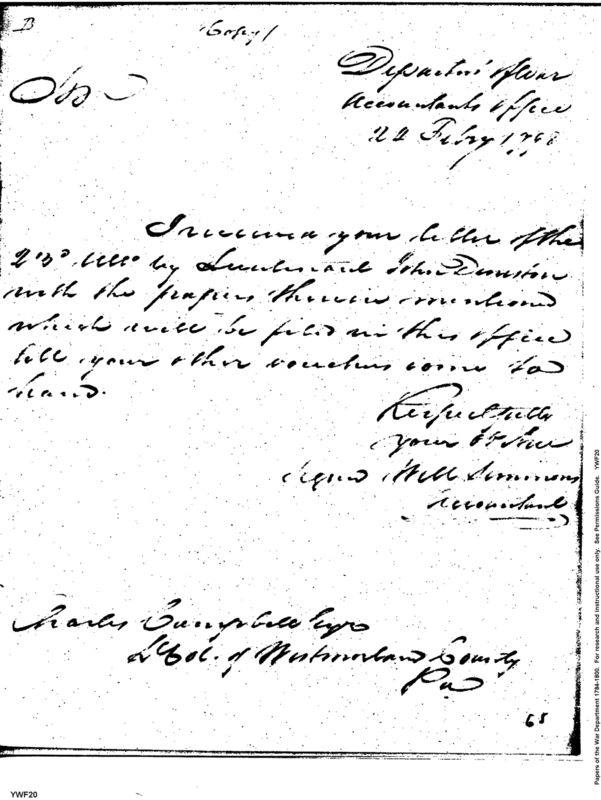 B
(Copy)
Departmt of War
Accountants Office
22 Febry 1798
Sir
I received your letter of the
23d Ulto by Lieutenant John Denniston
with the papers therein mentioned
which will be filed in this office
till your other vouchers come to
hand.
Respectfully
your Ob Ser
signed Will Simmons
Accountant
Charles Campbell Esqr
Lt Col. of Westmorland County
Pa
65
YWF20
Papers of the War Department 1784-1800. For research and instructional use only. See Permissions Guide. YWF20